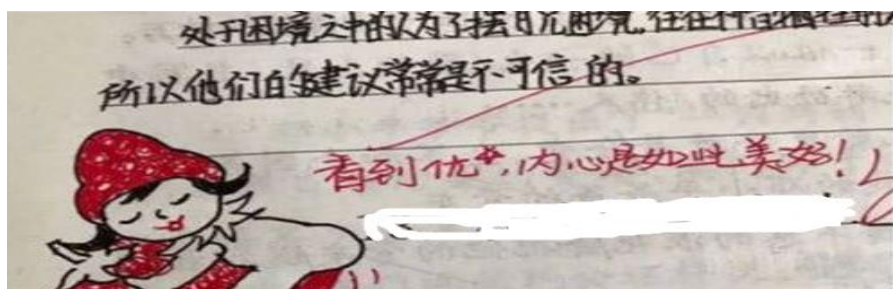 处于困境之中的人为了摆脱困境,往往
所以他们的建议常常是不可信的。
看到优*,内心是如此美好!